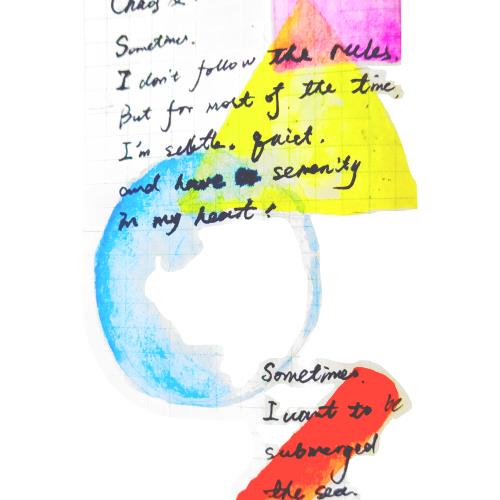 Chaos
Sometimes.
I don't follow the rules.
But for most of the time,
I'm subtle. quiet.
and have serenity
in my heart!
Sometimes.
I want to be
submerged
the sea.